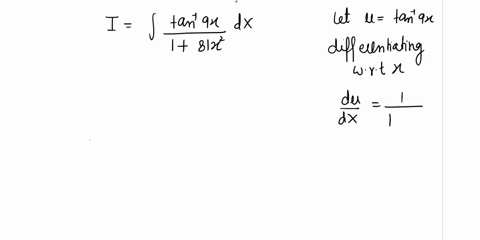 I = ∫ tan⁻¹ 9x / 1 + 81x² dx
let u = tan⁻¹ 9x
differentiating
w.r.t x
du/dx = 1/1